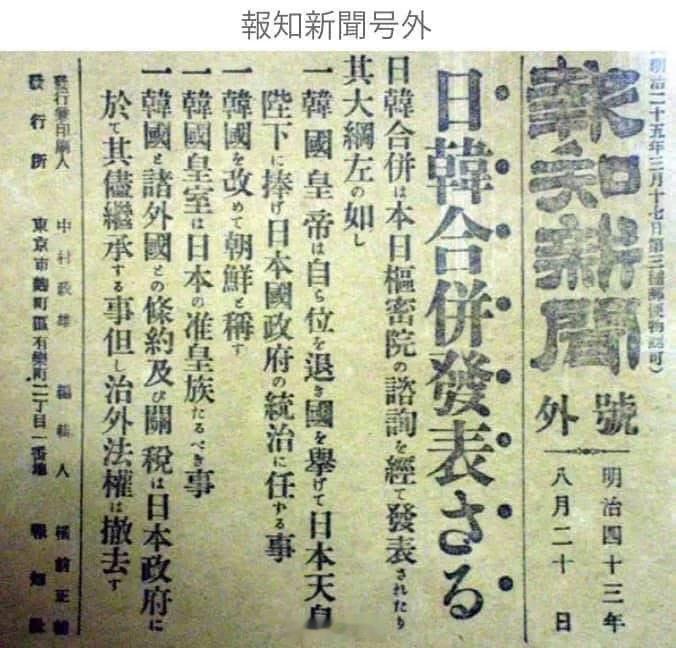 報知新聞号外
明治二十五年三月十七日第三種郵便物認可)
報知新聞
號外
明治四十三年
八月二十 日
日韓合併發表さる
日韓合併は本日樞密院の諮詢を經て發表されたり
其大綱左の如し
一韓國皇帝は自ら位を退き國を擧げて日本天皇
陛下に捧げ日本國政府の統治に任する事
一韓國を改めて朝鮮と稱す
一韓國皇室は日本の准皇族たるべき事
一韓國と諸外國との條約及び關税は日本政府に
於て其儘繼承する事但し治外法權は撤去す
發行兼印刷人 中村政雄 編輯人
發行所 東京市麹町區有樂町二丁目一番地 報知社